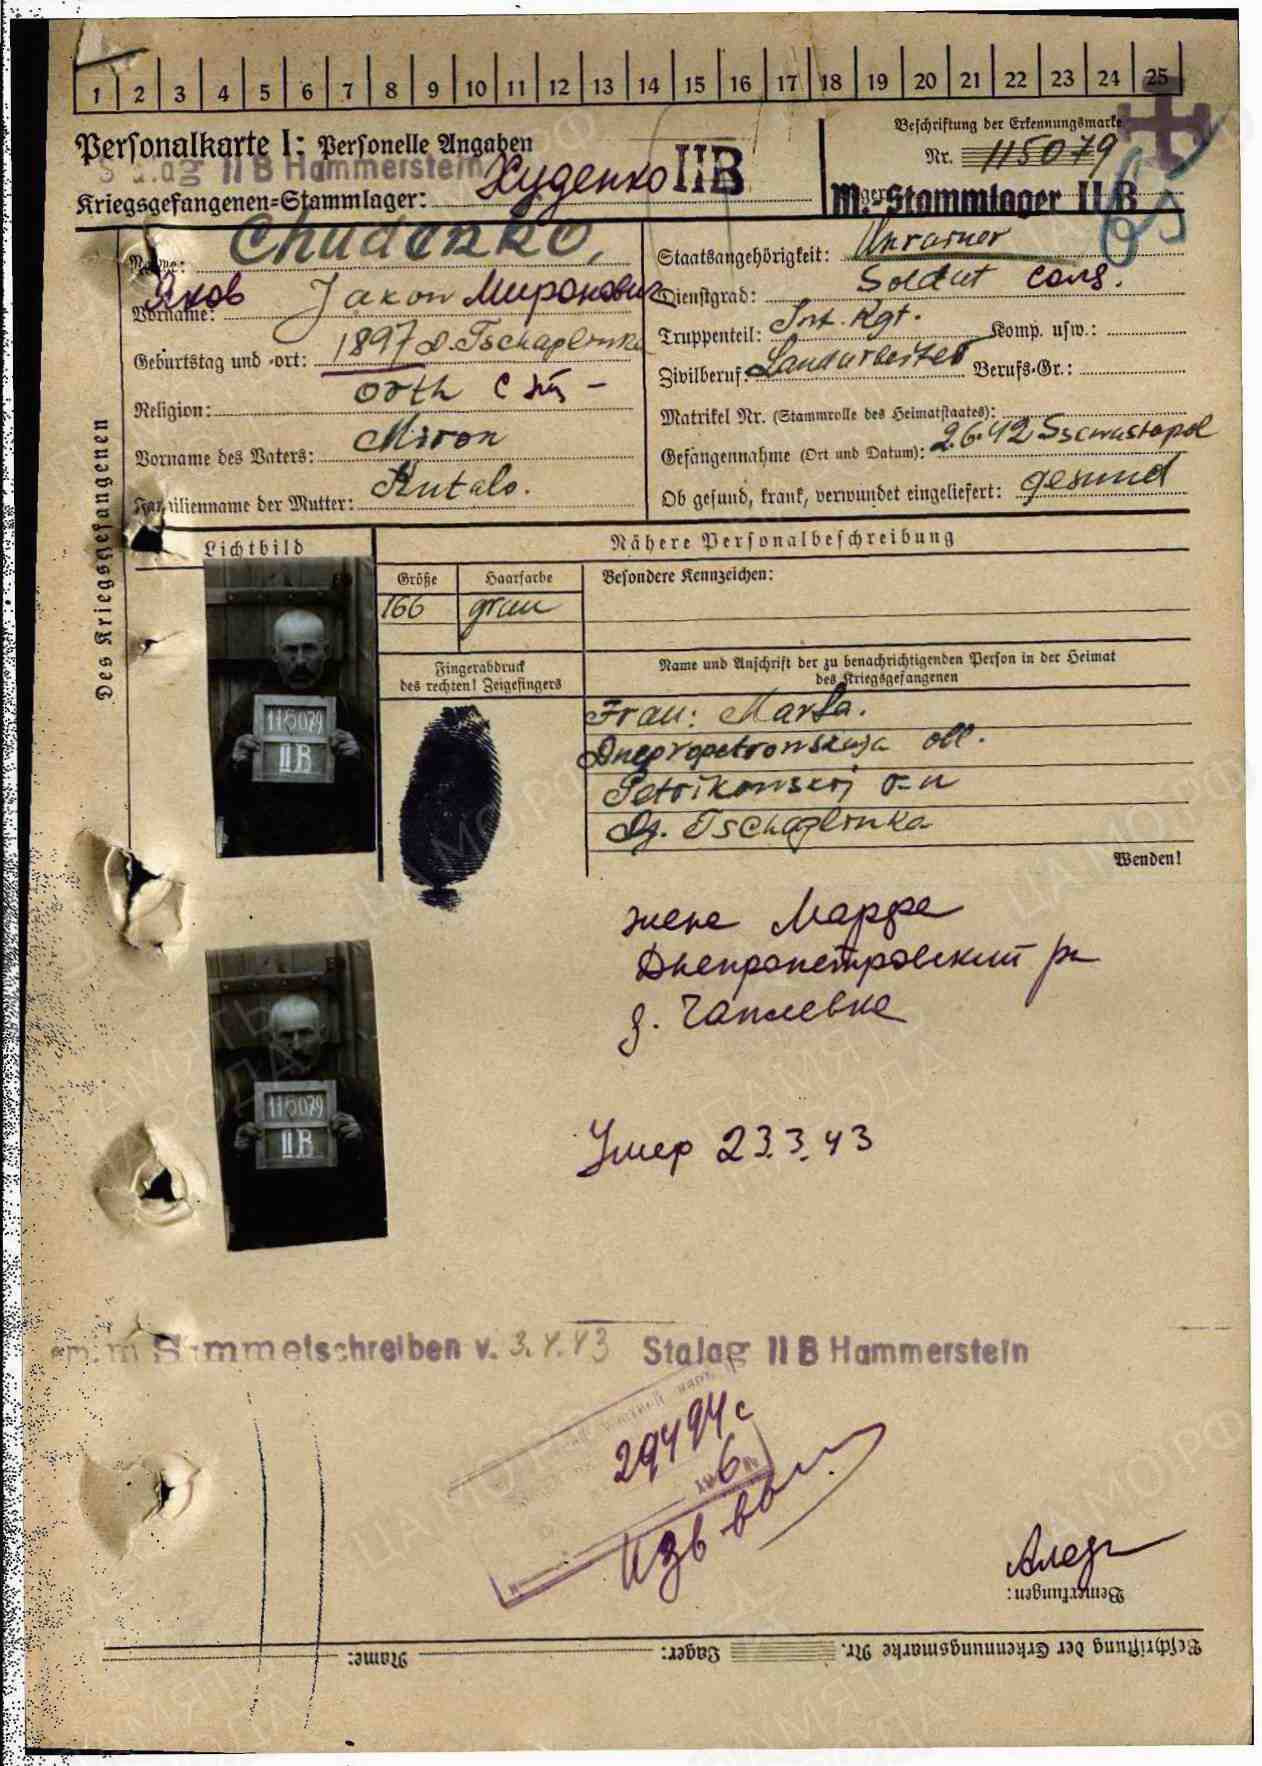 1 2 3 4 5 6 7 8 9 10 11 12 13 14 15 16 17 18 19 20 21 22 23 24 25
Personalkarte I: Personelle Angaben
Stalag II B Hammerstein
Kriegsgefangenen-Stammlager:
Худенко IIB
Beschriftung der Erkennungsmarke
Nr. 115079
M.-Stammlager II B
Des Kriegsgefangenen
Name: Chudenko,
Яков Jakow Миронович
Vorname:
Geburtstag und -ort: 1897 d. Tschaplinka
Religion: orth
Vorname des Vaters: Miron
Familienname der Mutter:
Staatsangehörigkeit: Ukrainer
Dienstgrad: Soldat солд.
Truppenteil: Inf. Rgt. Komp. usw.:
Zivilberuf: Landarbeiter Berufs-Gr.:
Matrikel Nr. (Stammrolle des Heimatstaates):
Gefangennahme (Ort und Datum): 2.6.42 Ssewastopol
Ob gesund, krank, verwundet eingeliefert: gesund
Lichtbild
115079
IIB
Nähere Personalbeschreibung
Größe Haarfarbe Besondere Kennzeichen:
166 grau
Fingerabdruck
des rechten! Zeigefingers
Name und Anschrift der zu benachrichtigenden Person in der Heimat
des Kriegsgefangenen
Frau: Marfa.
Dnepropetrowskaja obl.
Petrikowskij r-n
D. Tschaplinka
Wenden!
жене Марфе
Днепропетровский рн
д. Чаплевка
115079
IIB
Умер 23.3.43
Sammelschreiben v. 3.4.43 Stalag II B Hammerstein
29494с
6
Bemerkungen:
Beschriftung der Erkennungsmarke Nr. Lager: Name: